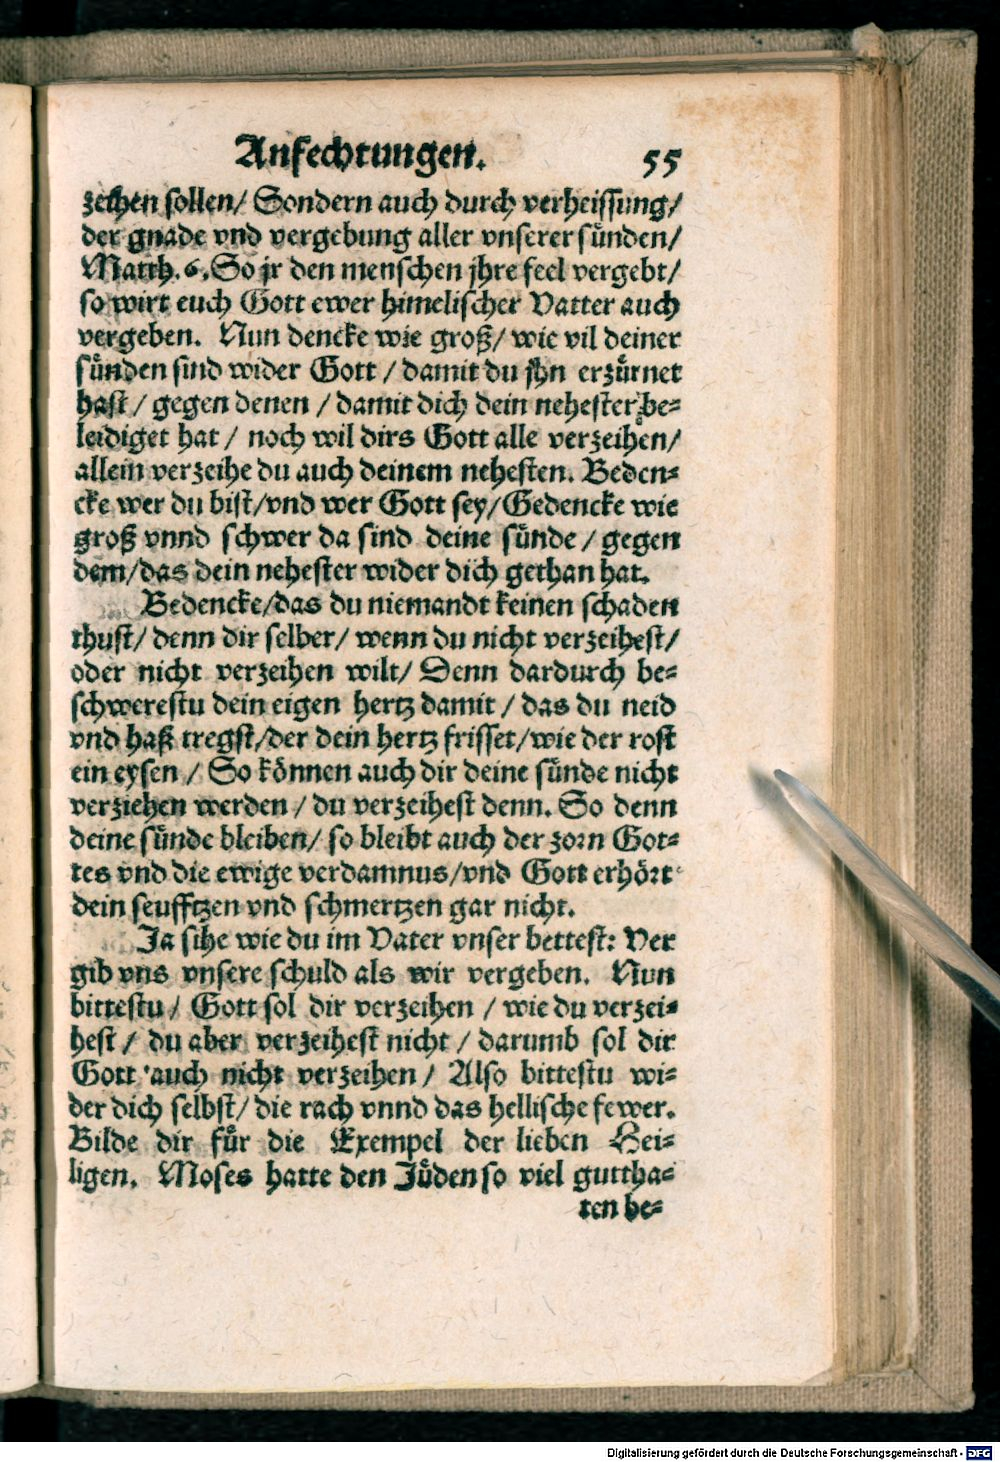 Anfechtungen. 55
zeihen sollen/ Sondern auch durch verheissung/
der gnade vnd vergebung aller vnserer sünden/
Matth. 6. So jr den menschen jhre feel vergebt/
so wirt euch Gott ewer himelischer Vatter auch
vergeben. Nun dencke wie groß/ wie vil deiner
sünden sind wider Gott / damit du jhn erzürnet
hast / gegen denen / damit dich dein nehester be⸗
leidiget hat / noch wil dirs Gott alle verzeihen/
allein verzeihe du auch deinem nehesten. Beden⸗
cke wer du bist/vnd wer Gott sey/Gedencke wie
groß vnnd schwer da sind deine sünde / gegen
dem/das dein nehester wider dich gethan hat.
Bedencke/das du niemandt keinen schaden
thust/ denn dir selber/ wenn du nicht verzeihest/
oder nicht verzeihen wilt/ Denn dardurch be⸗
schwerestu dein eigen hertz damit / das du neid
vnd haß tregst/der dein hertz frisset/wie der rost
ein eysen / So können auch dir deine sünde nicht
verziehen werden / du verzeihest denn. So denn
deine sünde bleiben/ so bleibt auch der zorn Got⸗
tes vnd die ewige verdamnus/vnd Gott erhört
dein seufftzen vnd schmertzen gar nicht.
Ja sihe wie du im Vater vnser bettest: Ver
gib vns vnsere schuld als wir vergeben. Nun
bittestu / Gott sol dir verzeihen / wie du verzei⸗
hest / du aber verzeihest nicht / darumb sol dir
Gott auch nicht verzeihen / Also bittestu wi⸗
der dich selbst/ die rach vnnd das hellische fewer.
Bilde dir für die Exempel der lieben Hei⸗
ligen. Moses hatte den Jüden so viel guttha⸗
ten be⸗
Digitalisierung gefördert durch die Deutsche Forschungsgemeinschaft - DFG